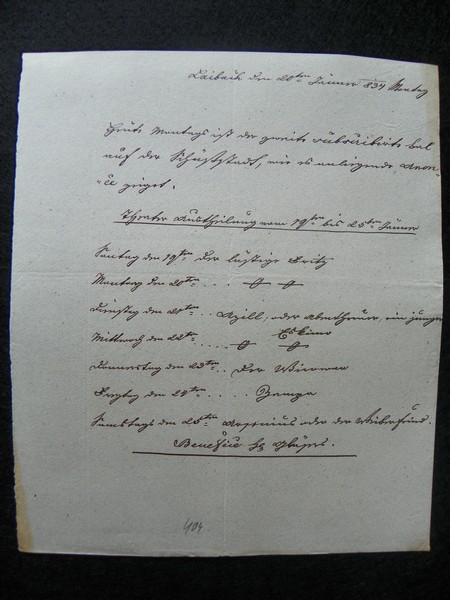 Laibach den 20ten Jänner 834 Montag
Heute Montags ist der zweite subscribirte bal
auf der Schießstadt, wie es anliegende Anon-
ce zeiget.
Theater Austheilung vom 19ten bis 25ten Jänner
Sontag den 19ten der lustige Fritz
Montag den 20ten . . .
Dienstag den 21ten . . . oder Abentheuer, ein junger
Eskimo
Mittwoch den 22ten . . . . .
Donnerstag den 23ten . . Der
Freytag den 24ten . . . . Zampa
Samstags den 25ten oder der Weiberfeind.
Benefice H
404